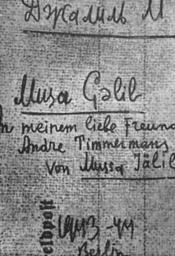 Джалиль М
Musa Gəlil
In meinem liebe Freund
Andre Timmermans
von Mussa Jälil
eldpost
1943-44
Berlin